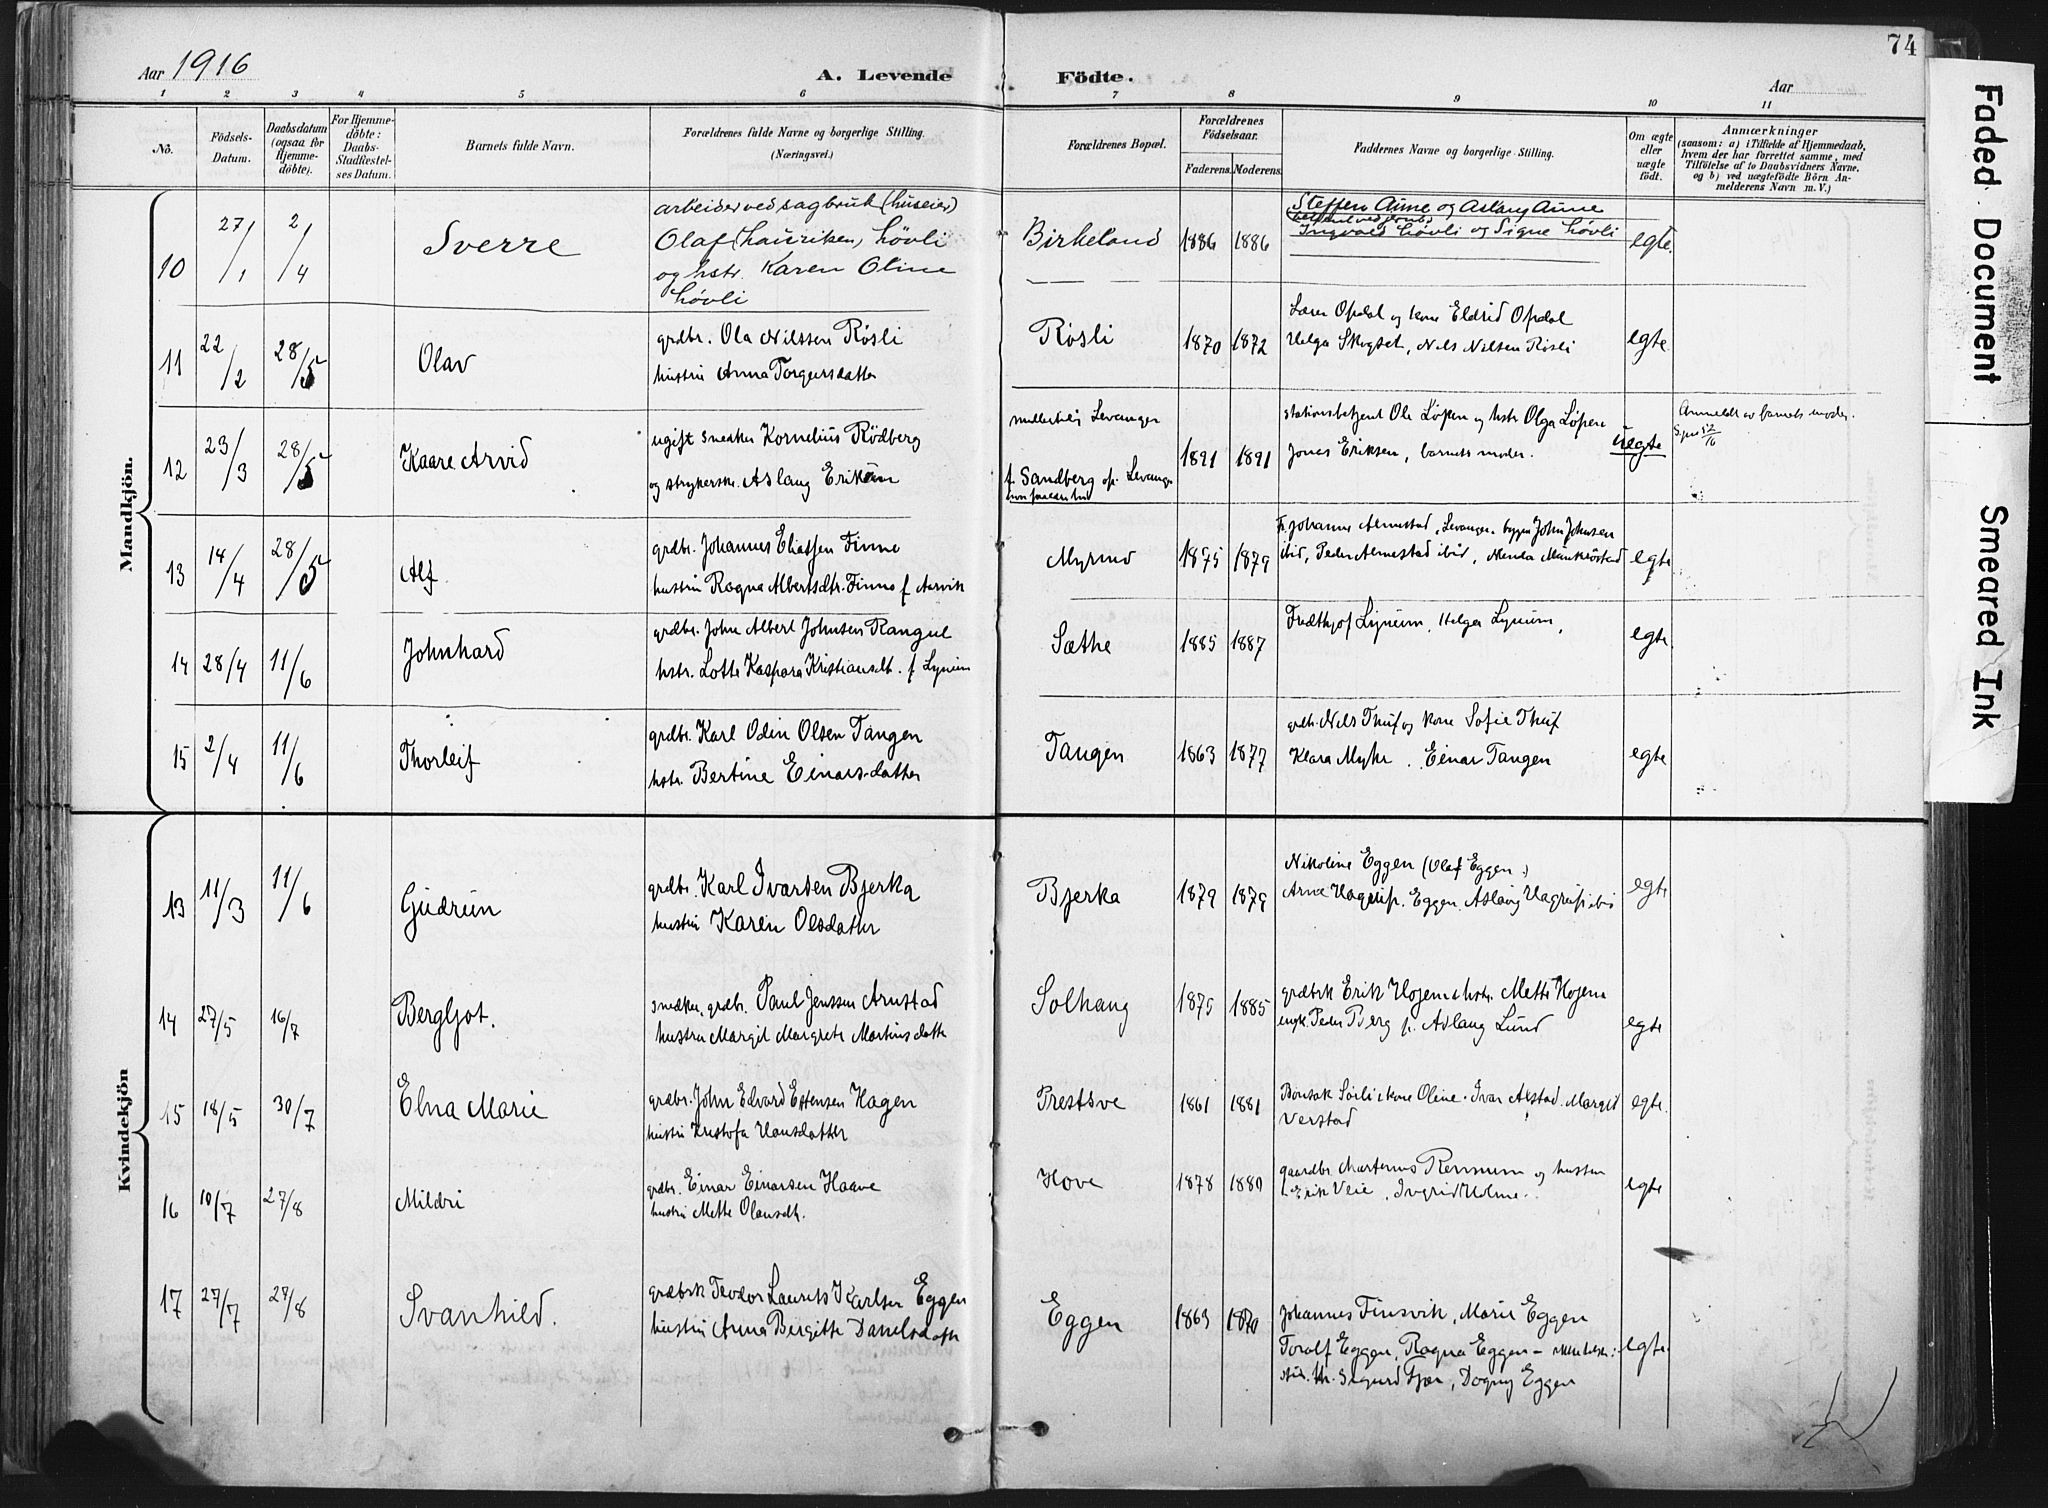 74
Aar 1916
A. Levende Födte.
Aar
1 2 3 4 5 6 7 8 9 10 11
No.
Födsels-Datum.
Daabsdatum (ogsaa for Hjemme-döbte).
For Hjemme-döbte: Daabs-Stadfæstel-ses Datum.
Barnets fulde Navn.
Forældrenes fulde Navne og borgerlige Stilling. (Næringsvei.)
Forældrenes Bopæl.
Forældrenes Födselsaar.
Faderens. Moderens.
Faddernes Navne og borgerlige Stilling.
Om ægte eller uægte födt.
Anmærkninger
(saasom: a) i Tilfælde af Hjemmedaab, hvem der har forrettet samme, med Tilföielse af to Daabsvidners Navne, og b) ved uægtefödte Börn An-melderens Navn m. V.)
Mandkjön.
10 27/1 2/4 Sverre
arbeider ved sagbruk (huseier)
Olaf (Lauritsen) Hövli
og hstr. Karen Oline
Hövli
Birkeland 1886 1886
Steffen Aune og Aslaug Aune
Ingvald Hövli og Signe Hövli
egte.
11 22/2 28/5 Olav
grdbr. Ola Nilssen Røsli
hustru Anna Torgersdatter
Røsli 1870 1872
Lærer Opdal og kone Eldrid Opdal
Helga Skogset, Nils Nilsen Røsli
egte
12 23/3 28/5 Kaare Arvid
ugift snedker Kornelius Rödberg
og strykerske Aslaug Eriksen
Levanger
f. Sandberg Levanger
1891 1891
stationsbetjent Ole Løpen og hstr Olga Løpen
Jonas Eriksen, barnets moder.
uegte
Anmeldt av barnets moder.
13 14/4 28/5 Alf.
grdbr. Johannes Eliassen Finne
hustru Ragna Albertsdtr. Finne f. Aarvik
Myrmo 1875 1879
Johanne Almestad, Levanger, John Johnsen
ibid, Peder Almestad ibid,
egte
14 28/4 11/6 Johnhard
grdbr. John Albert Johnsen Rangul
hstr. Lotte Kaspara Kristiansdt. f. Lyneim
Sæthe 1885 1887
Fredthjof Lyneim, Helga Lyneim,
egte
15 2/4 11/6 Thorleif
grdbr. Karl Odin Olsen Tangen
hstr. Bertine Einarsdatter
Tangen 1863 1877
grdb. Nils Tkuf og kone Sofie Tkuf
Klara Myhr. Einar Tangen
egte
Kvindekjön
13 11/3 11/6 Gudrun
grdbr. Karl Ivarsen Bjerka
hustru Karen Olsdatter
Bjerka 1879 1879
Nikoline Eggen (Olaf Eggen.)
Eggen, Aslaug
egte
14 27/5 16/7 Bergljot.
snedker, grdbr. Paul Jenssen Arnstad
hustru Margit Margrete Martinsdatter
Solhaug 1875 1885
grdbrk Erik Hojem & hstr. Mette Hojem
ungk. Peder Berg p. Aslaug Lund
egte
15 18/5 30/7 Elna Marie
grdbr. John Edvard Estensen Hagen
hustru Kristofa Hansdatter
Prestsve 1861 1881
Bonsak Sørli & kone Oline. Ivar Arstad. Margit
Verstad
egte.
16 10/7 27/8 Mildri
grdbr. Einar Einarsen Haave
hustru Mette Olausdt.
Hove 1878 1880
gaardbr. Martinus Remmem og hustru
Erik Veie, Ingrid Holme.
egte
17 27/7 27/8 Svanhild.
grdbrk Teodor Laurits Karlsen Eggen
hustru Anna Birgitte Danelsdatter
Eggen 1863 1870
Johannes Finsvik, Marie Eggen
Toralf Eggen, Ragna Eggen –
Sigurd Tjær, Dagny Eggen
egte
Faded Document
Smeared Ink